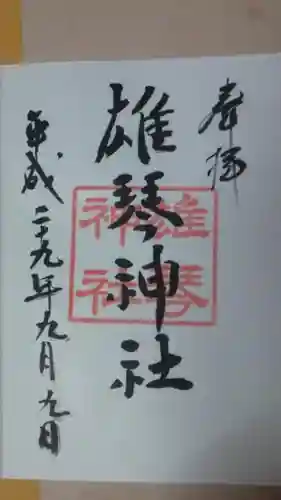 奉拝
雄琴神社
雄琴神社
平成二十九年九月九日